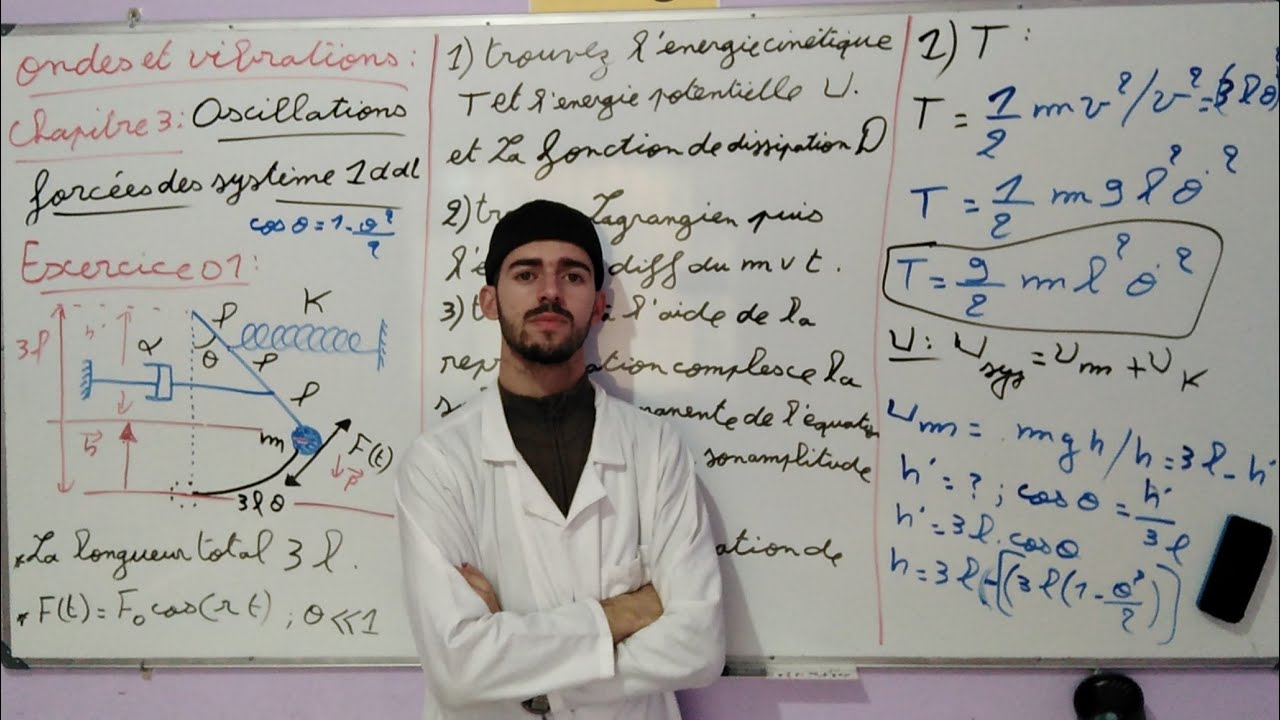 ondes et vibrations :
Chapitre 3 : Oscillations
forcées des système 1 ddl
cos θ = 1 - θ²/2
Exercice 01 :
3l
h'
α
θ
l
l
l
K
h
m
F(t)
P
3lθ
* La longueur total 3l.
* F(t) = F₀ cos(Ωt) ; θ << 1
1) trouvez l'énergie cinétique
T et l'énergie potentielle U.
et La fonction de dissipation D
2) Lagrangien puis
diff du mvt.
3) l'aide de la
complesce la
de l'équation
son amplitude
de
1) T :
T = 1/2 m v² / v² = (3lθ̇
T = 1/2 m 9 l² θ̇²
T = 9/2 m l² θ̇²
U : Usys = Um + UK
Um = mgh / h = 3l - h'
h' = ? ; cos θ = h'/3l
h' = 3l. cos θ
h = 3l - [(3l(1 - θ²/2)]